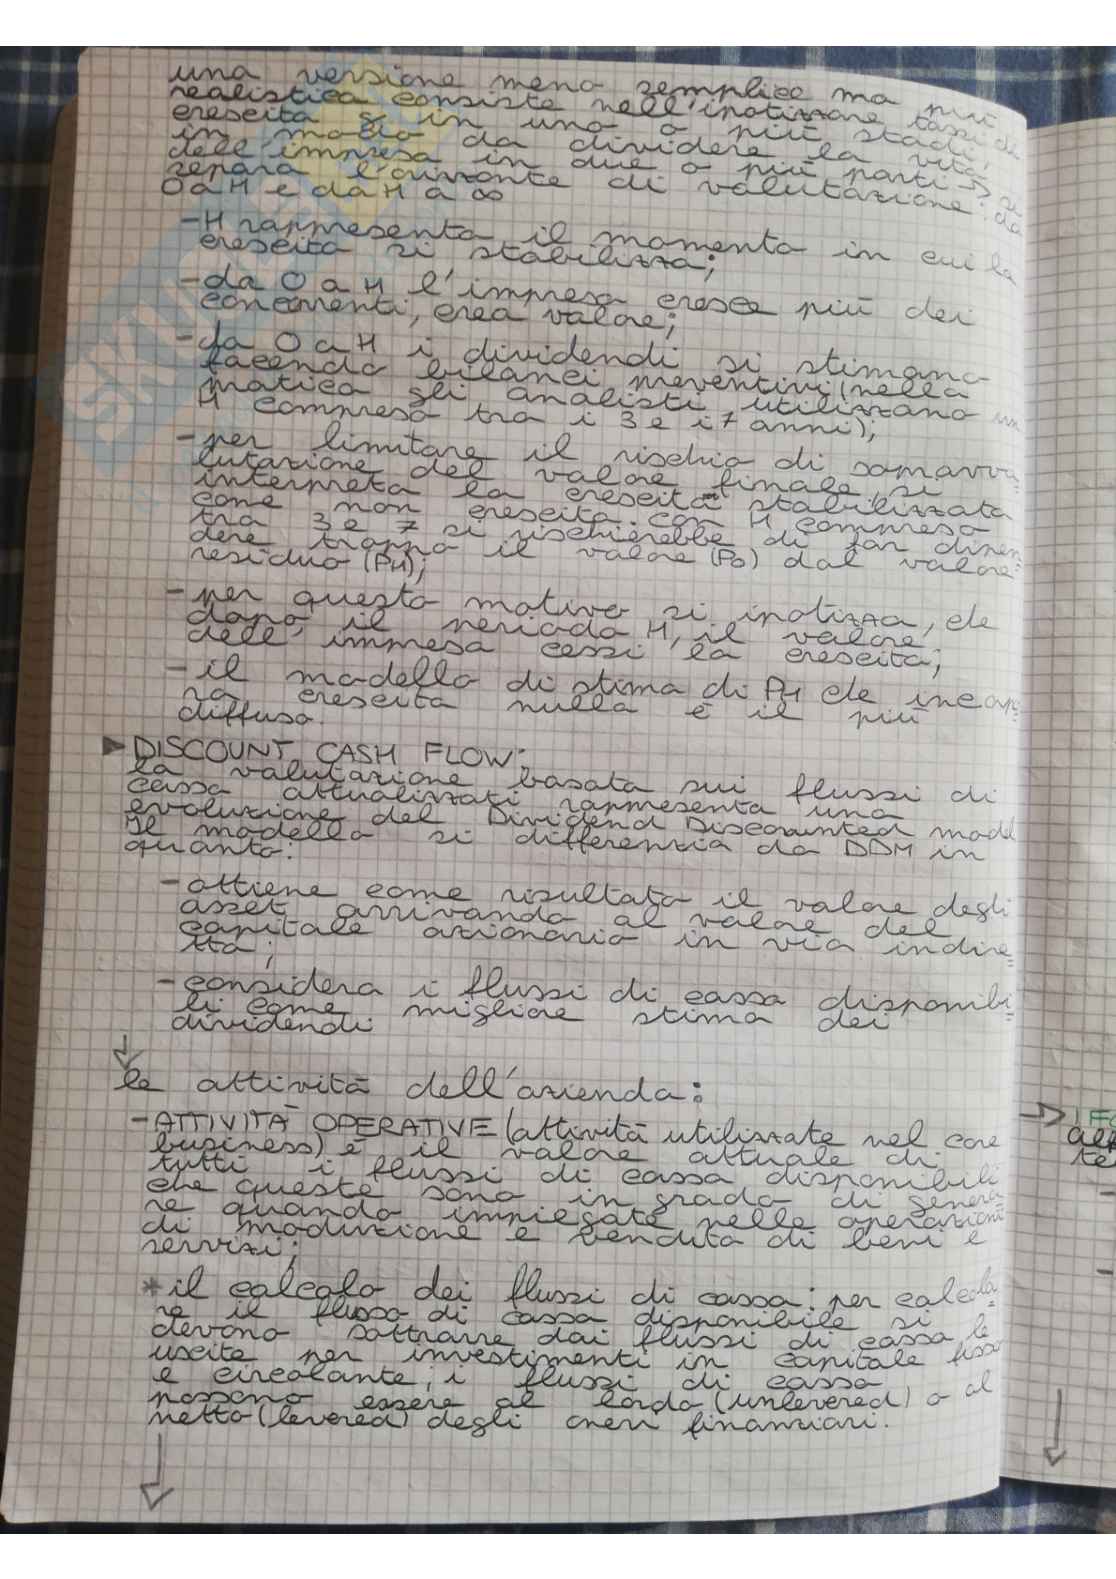 una versione meno semplice ma più
realistica consiste nell'ipotizzare tassi di
crescita g in uno o più stadi,
in modo da dividere la vita
dell'impresa in due o più parti → si
separa l'orizzonte di valutazione: da
0 a H e da H a ∞
- H rappresenta il momento in cui la
crescita si stabilizza;
- da 0 a H l'impresa cresce più dei
concorrenti, crea valore;
- da 0 a H i dividendi si stimano
facendo bilanci preventivi (nella
pratica gli analisti utilizzano un
H compreso tra i 3 e i 7 anni);
- per limitare il rischio di sopravva=
lutazione del valore finale, si
interpreta la crescita stabilizzata
come non crescita. con H compreso
tra 3 e 7 si rischierebbe di far dipen
dere troppo il valore (P0) dal valore
residuo (PH);
- per questo motivo si ipotizza, che
dopo il periodo H, il valore
dell'impresa cessi la crescita;
- il modello di stima di PH che incorpo=
ra crescita nulla è il più
diffuso.
► DISCOUNT CASH FLOW:
la valutazione basata sui flussi di
cassa attualizzati rappresenta una
evoluzione del Dividend Discounted model
Il modello si differenzia da DDM in
quanto:
- ottiene come risultato il valore degli
asset arrivando al valore del
capitale azionario in via indire=
tta;
- considera i flussi di cassa disponibi=
li come migliore stima dei
dividendi
↓
le attività dell'azienda:
- ATTIVITÀ OPERATIVE (attività utilizzate nel core
business) è il valore attuale di
tutti i flussi di cassa disponibili
che queste sono in grado di genera
re quando impiegate nelle operazioni
di produzione e vendita di beni e
servizi;
* il calcolo dei flussi di cassa: per calcola=
re il flusso di cassa disponibile si
devono sottrarre dai flussi di cassa le
uscite per investimenti in capitale fisso
e circolante; i flussi di cassa
possono essere al lordo (unlevered) o al
netto (levered) degli oneri finanziari.
↓